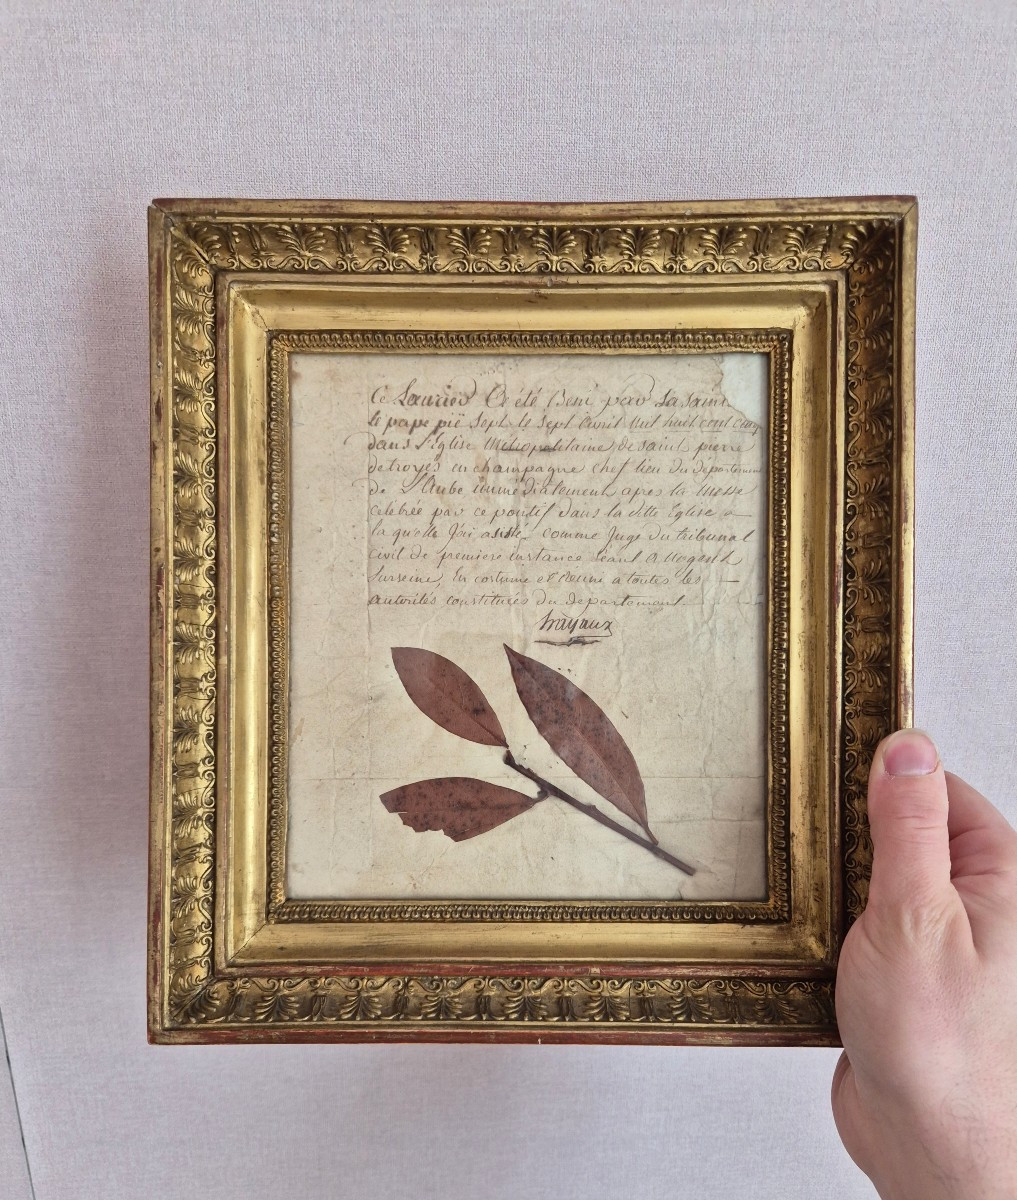 Ce Laurier A été Beni par La saint
le pape pie Sept le sept avril mil huit cent cinq
dans l'Eglise métropolitaine de saint pierre
de troyes en champagne chef lieu du département
de L'Aube immédiatement après la Messe
celebrée par ce pontif dans la ditte Eglise a
la quelle J'ai assisté comme Juge du tribunal
civil de premiere instance séant a Nogent
sur seine, En costume et Réuni a toutes les
autorités constituées du departement